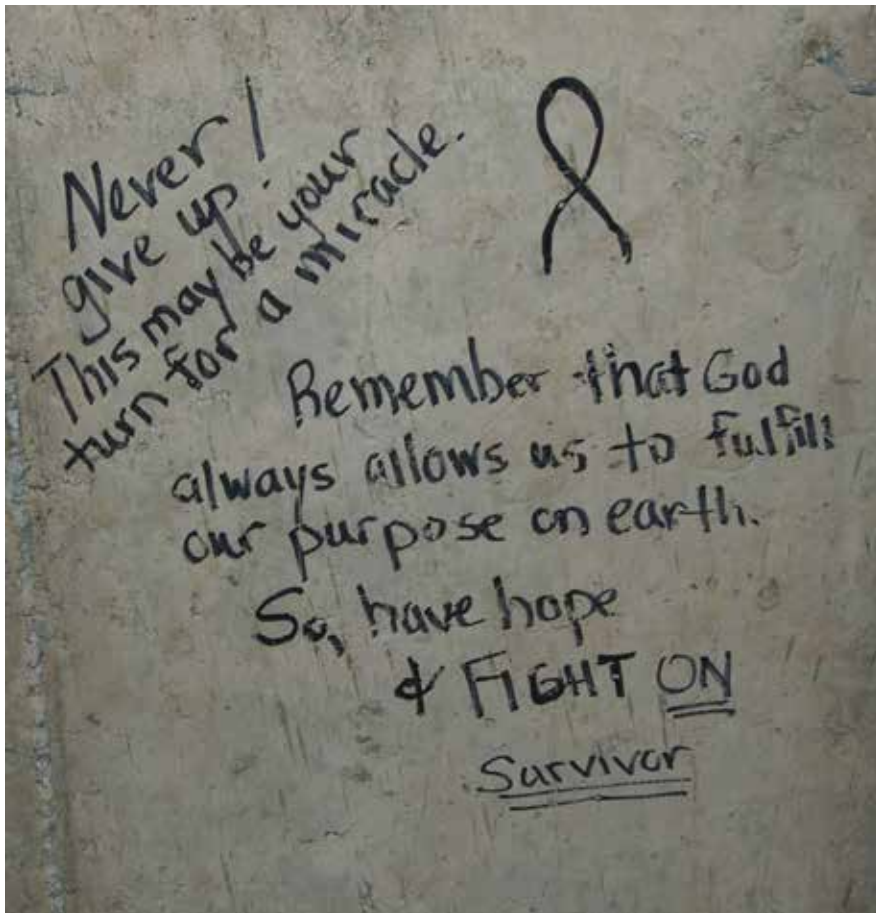 Never!
give up.
This may be your
turn for a miracle.
Remember that God
always allows us to fulfill
our purpose on earth.
So, have hope
& FIGHT ON
Survivor